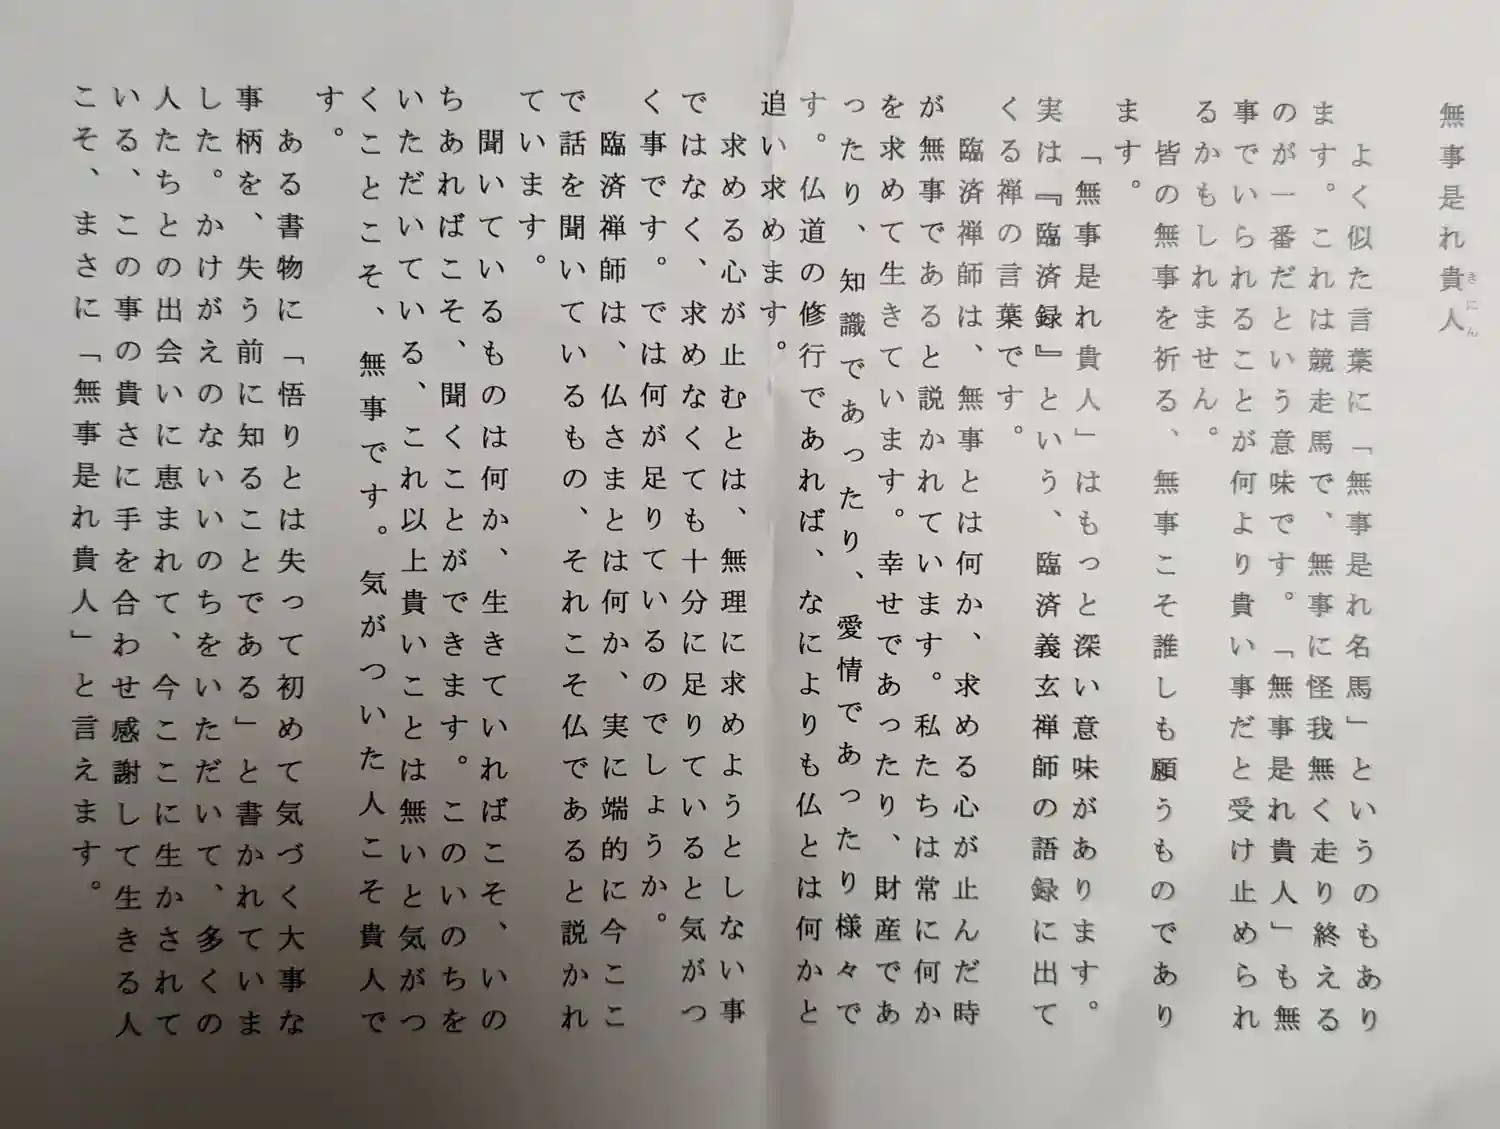 無事是れ貴人
きにん
よく似た言葉に「無事是れ名馬」というのもあり
ます。これは競走馬で、無事に怪我無く走り終える
のが一番だという意味です。「無事是れ貴人」も無
事でいられることが何より貴い事だと受け止められ
るかもしれません。
皆の無事を祈る、無事こそ誰しも願うものであり
ます。
「無事是れ貴人」はもっと深い意味があります。
実は『臨済録』という、臨済義玄禅師の語録に出て
くる禅の言葉です。
臨済禅師は、無事とは何か、求める心が止んだ時
が無事であると説かれています。私たちは常に何か
を求めて生きています。幸せであったり、財産であ
ったり、知識であったり、愛情であったり様々で
す。仏道の修行であれば、なによりも仏とは何かと
追い求めます。
求める心が止むとは、無理に求めようとしない事
ではなく、求めなくても十分に足りていると気がつ
く事です。では何が足りているのでしょうか。
臨済禅師は、仏さまとは何か、実に端的に今ここ
で話を聞いているもの、それこそ仏であると説かれ
ています。
聞いているものは何か、生きていればこそ、いの
ちあればこそ、聞くことができます。このいのちを
いただいている、これ以上貴いことは無いと気がつ
くことこそ、無事です。気がついた人こそ貴人で
す。
ある書物に「悟りとは失って初めて気づく大事な
事柄を、失う前に知ることである」と書かれていま
した。かけがえのないいのちをいただいて、多くの
人たちとの出会いに恵まれて、今ここに生かされて
いる、この事の貴さに手を合わせ感謝して生きる人
こそ、まさに「無事是れ貴人」と言えます。